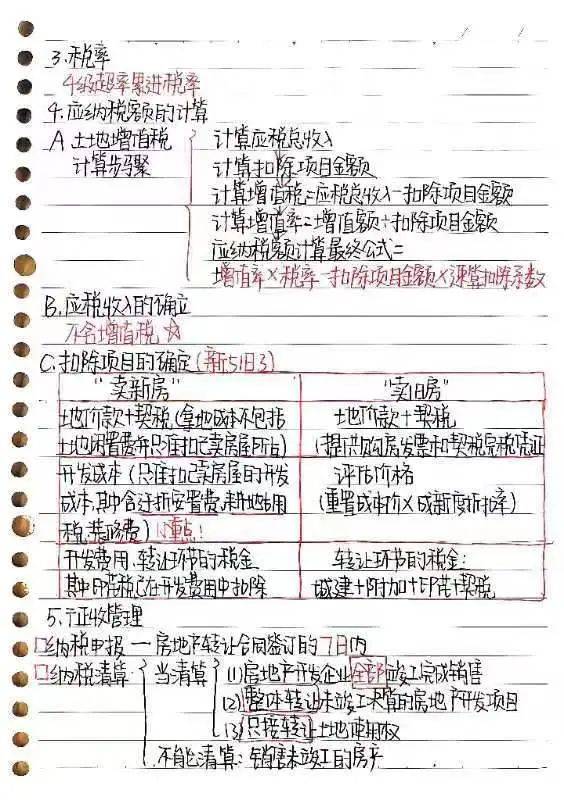 3.税率
4级超率累进税率
4.应纳税额的计算
A.土地增值税
计算步骤
计算应税总收入
计算扣除项目金额
计算增值税=应税总收入-扣除项目金额
计算增值率=增值额÷扣除项目金额
应纳税额计算最终公式=
增值率×税率-扣除项目金额×速算扣除系数
B.应税收入的确立
不含增值税☆
C.扣除项目的确定(新5旧3)
"卖新房"
"卖旧房"
土地价款+契税(拿地成本不包括
土地闲置费并只准扣已卖房屋所占)
地价款+契税
(提供购房发票和契税完税凭证
开发成本(只准扣已卖房屋的开发
成本,其中含迁拆安置费,耕地占用
税,装修费)重点!
评估价格
(重置成本价×成新度折扣率)
开发费用、转让环节的税金
其中印花税已在开发费用中扣除
转让环节的税金:
城建+附加+印花+契税
5.征收管理
纳税申报—房地产转让合同签订的7日内
纳税清算
当清算
(1)房地产开发企业全部竣工完成销售
(2)整体转让未竣工决算的房地产开发项目
(3)只接转让土地使用权
不能清算:销售未竣工的房产